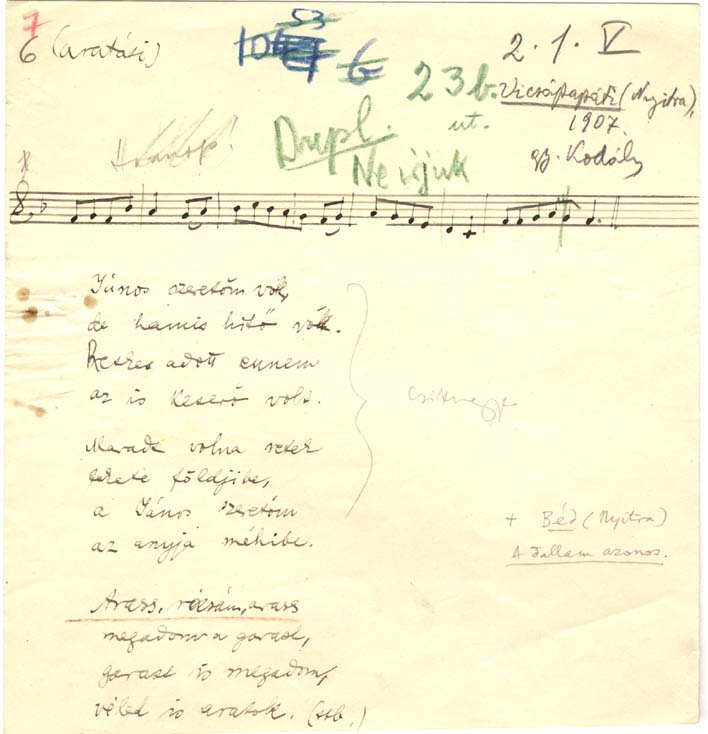 7
6 (aratási)
53
6
2. 1. V
23b.
ut.
Vicsápapáti (Nyitra),
1907.
gy. Kodály
Dupl.
Ne írjuk
János szeretőm vót,
de hamis hitő vót.
Retket adott ennem
az is keserő volt.
Maradt volna retek
fekete földjibe,
a János szeretőm
az anyja méhibe.
+ Béd (Nyitra)
A dallam azonos.
Arass, rózsám, arass
megadom a garast,
garast is megadom,
véled is aratok. (stb.)